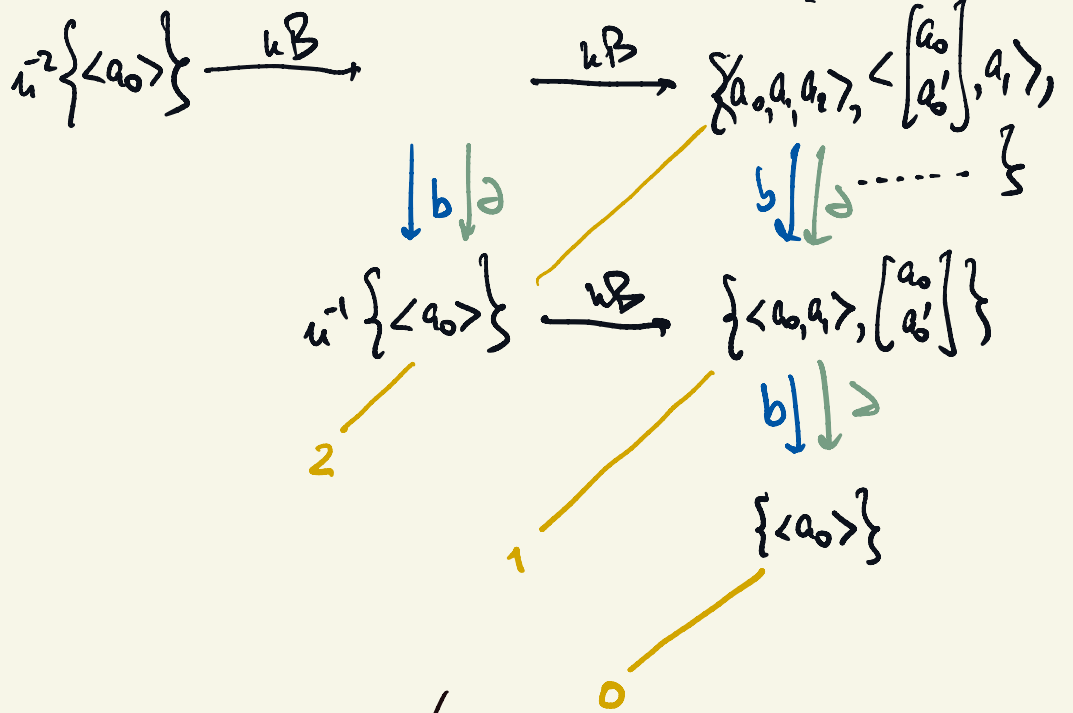 u⁻²{<a₀>} uB uB {<a₀,a₁,a₂>, <[a₀ a₀'], a₁>,
b ∂ b ∂ ...... }
u⁻¹{<a₀>} uB {<a₀,a₁>, [a₀ a₀']}
2 b ∂
1 {<a₀>}
0